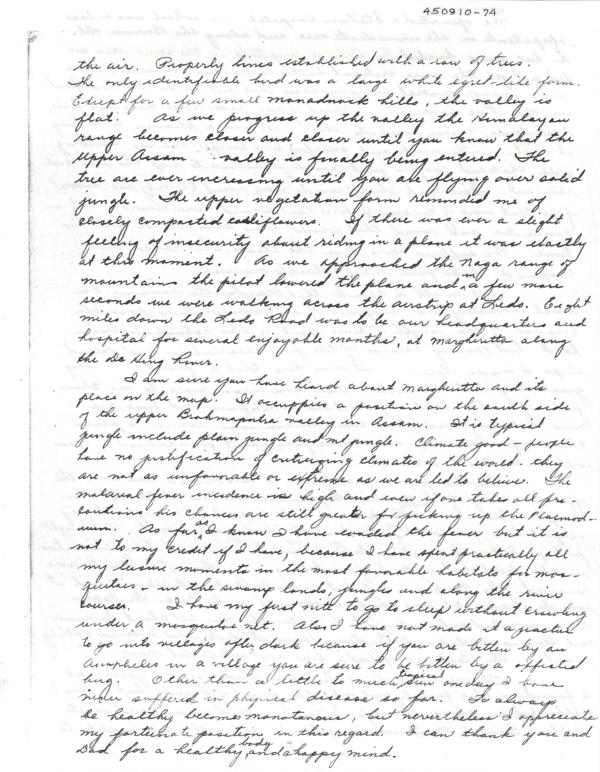 450910-74
the air. Properly lines established with a row of trees.
The only identifiable bird was a large white egret-like form.
Except for a few small monadnock hills, the valley is
flat. As we progress up the valley the Himalayan
range becomes closer and closer until you know that the
Upper Assam valley is finally being entered. The
tree are ever increasing until you are flying over solid
jungle. The upper vegetation form reminded me of
closely compacted cauliflowers. If there was ever a slight
feeling of insecurity about riding in a plane it was exactly
at this moment. As we approached the Naga range of
mountains the pilot lowered the plane and in a few more
seconds we were walking across the airstrip at Ledo. Eight
miles down the Ledo Road was to be our headquarters and
hospital for several enjoyable months, at Margheritta along
the De Hing River.
I am sure you have heard about Margheritta and its
place on the map. It occupies a position on the south side
of the upper Brahmaputra valley in Assam. It is typical
jungle include plain jungle and mt jungle. Climate good - people
have no justification of critisizing climates of the world. they
are not as unfavorable or extreme as we are led to believe. The
malareal fever incidence is high and even if one takes all pre-
cautions his chances are still greater for picking up the Plasmod-
ium. As far as I know I have evaded the fever but it is
not to my credit if I have, because I have spent practically all
my leisure moments in the most favorable habitats for mos-
quitoes - in the swamp lands, jungles and along the river
courses. I have my first nite to go to sleep without crawling
under a mosquitoe net. Also I have not made it a practice
to go into villages after dark because if you are bitten by an
Anopheles in a village you are sure to be bitten by a affected
bug. Other than a little to much tropical sun one day I have
never suffered in physical disease so far. To always
be healthy becomes monotonous, but nevertheless I appreciate
my fortunate position in this regard. I can thank you and
Dad for a healthy body and a happy mind.